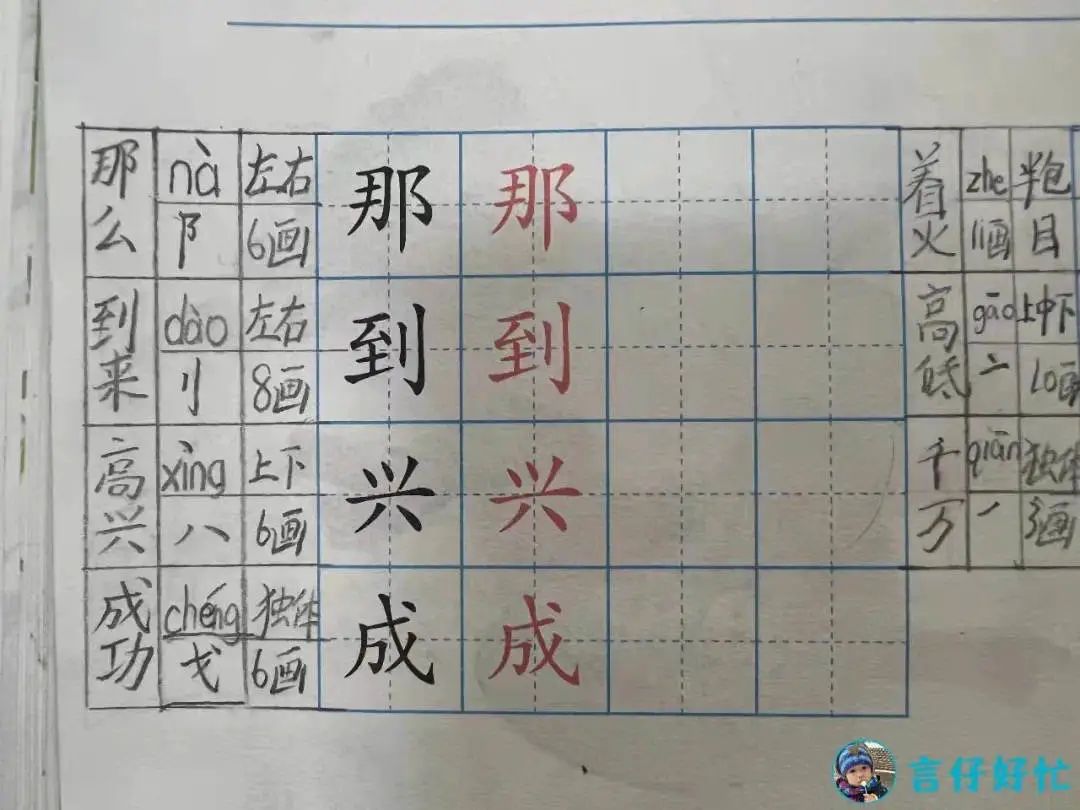 那么 nà 左右 那 那
阝 6画
到来 dào 左右 到 到
刂 8画
高兴 xìng 上下 兴 兴
八 6画
成功 chéng 独体 成 成
戈 6画
着火 zhe 半包
11画 目
高低 gāo 上中下
亠 10画
千万 qiān 独体
丿 3画
言仔好忙